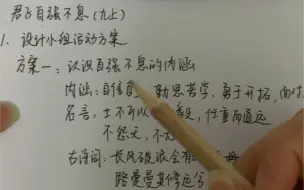 君子自强不息(九上)
1. 设计小组活动方案
方案一:认识自强不息的内涵
内涵:自信自 勤思苦学、勇于开拓,面
名言:士不可以 毅,任重而道远
不怨天,不
古诗词:长风破浪会有
路曼曼其修远兮